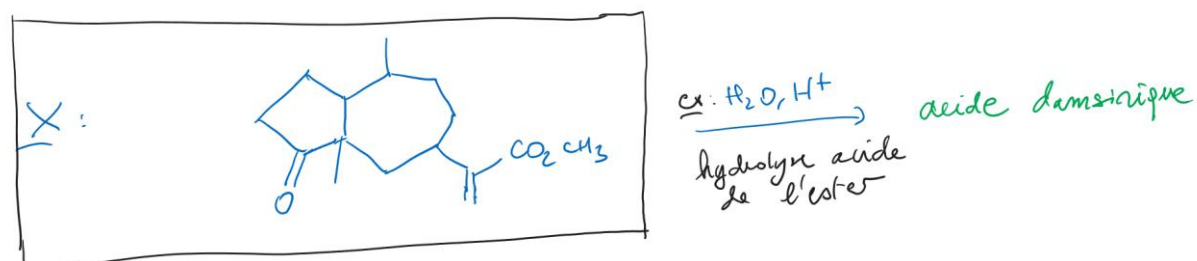 X :
O
CO2CH3
ex: H2O, H+
hydrolyse acide
de l'ester
acide damsinique